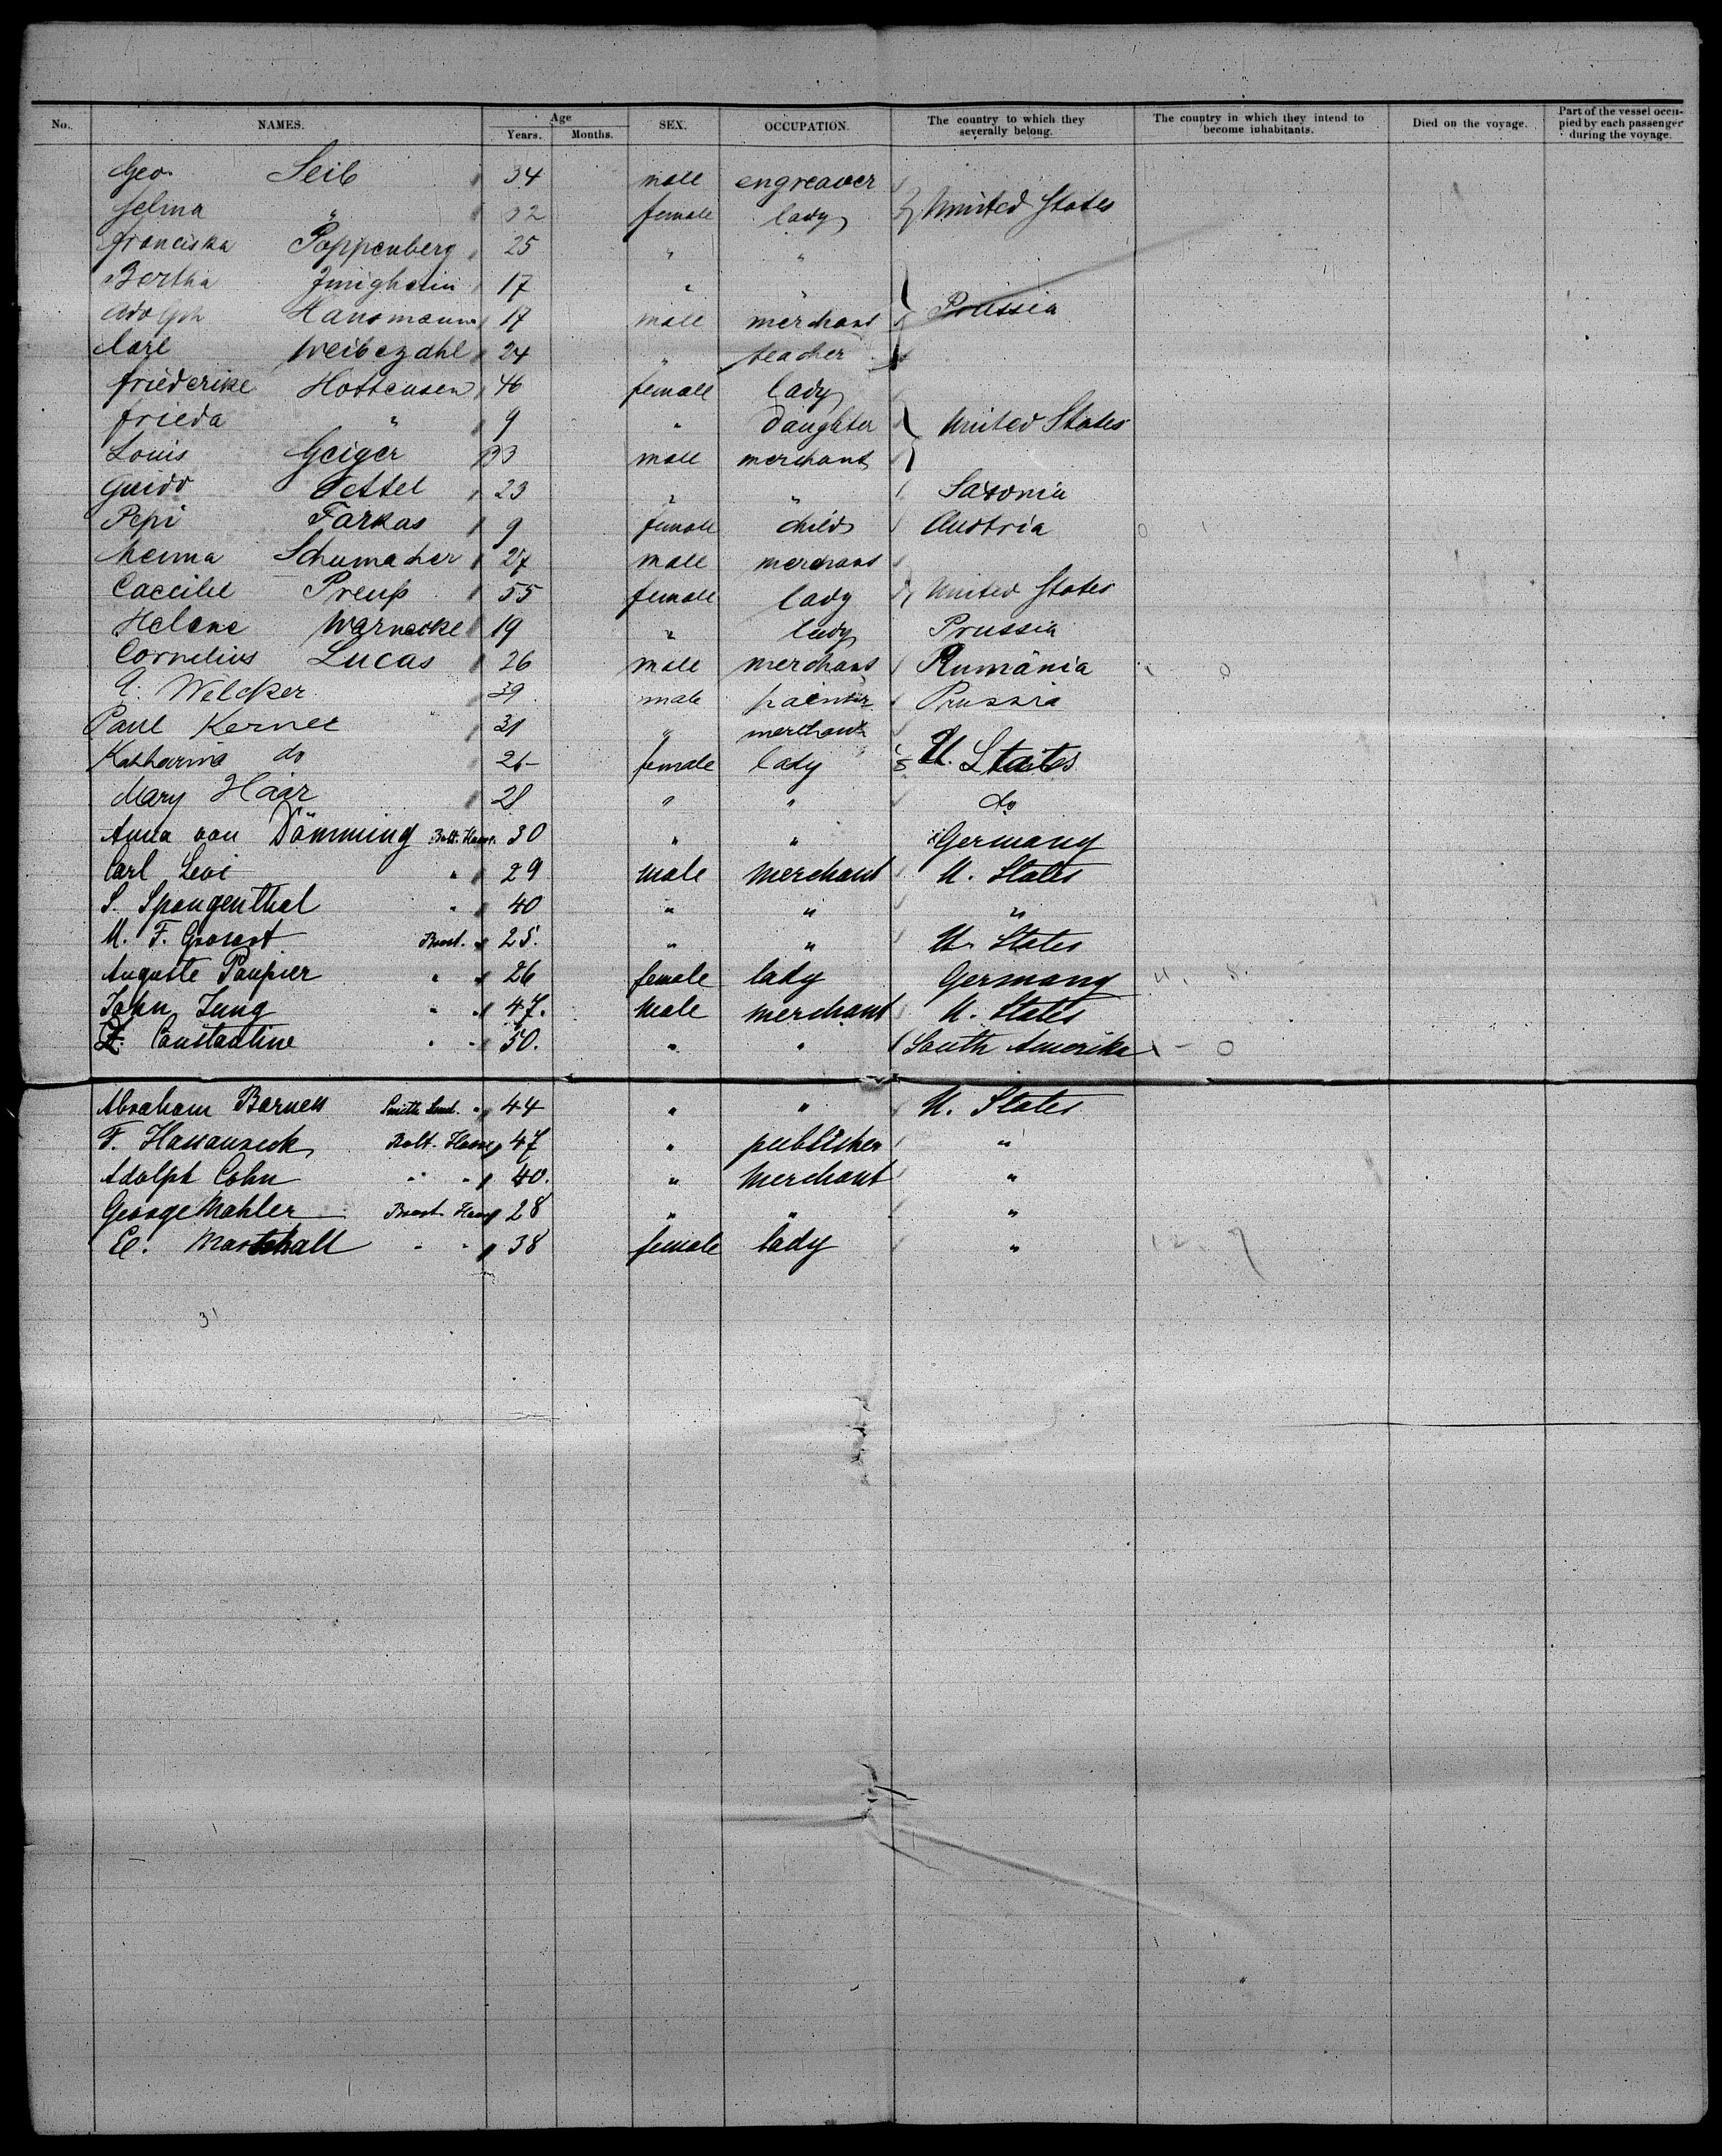 No. NAMES. Age Years. Months. SEX. OCCUPATION. The country to which they severally belong. The country in which they intend to become inhabitants. Died on the voyage. Part of the vessel occupied by each passenger during the voyage.
Geo. Seib 34 male engreaver
Selma " 32 female lady United States
Franciska Poppenberg 25 " "
Bertha Jungheim 17 " "
Adolph Hansmann 17 male merchant Prussia
Carl Weibezahl 24 " teacher
Friederike Hottensen 46 female lady
Frieda " 9 " daughter United States
Louis Geiger 33 male merchant
Guido Tettel 23 " " Saxonia
Pepi Farkas 9 female child Austria
Menna Schumacher 27 male merchant
Caecilie Preuß 55 female lady United States
Helene Warnecke 19 " lady Prussia
Cornelius Lucas 26 male merchant Rumänia 1 0
A. Welcker 39 male painter Prussia
Paul Kernee 31 " merchant
Katharina do 26 female lady U. States
Mary Haar 28 " " do
Anna von Dömming Balt. Hans. 30 " " Germany
Carl Levi " " 29 male merchant U. States
S. Spangenthal " " 40 " " "
M. F. Grosart " 25. " " U. States
Auguste Paupier " " 26 female lady Germany
John Jung " " 47. male merchant U. States
Constantine " " 50. " " South Amerika 1 - 0
Abraham Barnett " 44 " " U. States
F. Hassaureck Balt. Hans 47 " publisher "
Adolph Cohn " " 40. " merchant "
George Mahler Hans 28 " " "
E. Marschall " " 38 female lady "
31